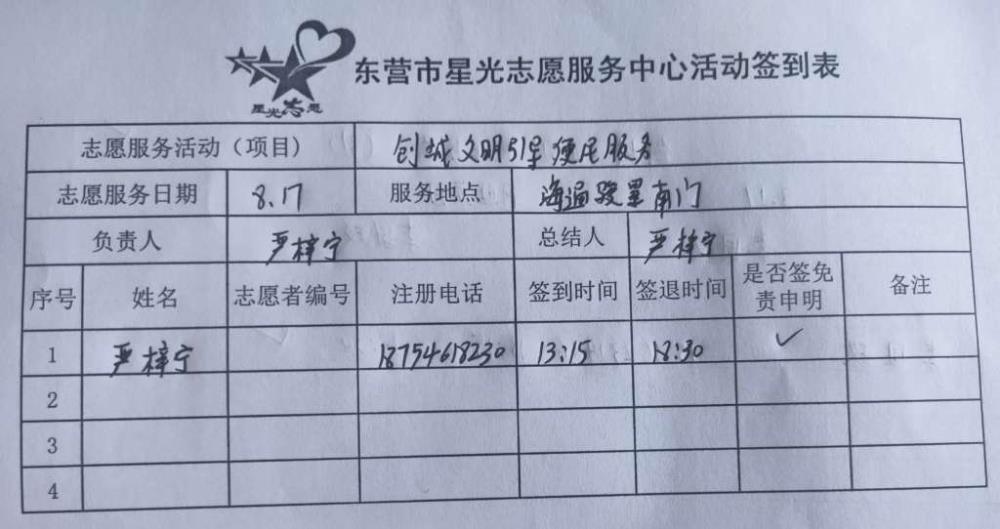 星光志愿
东营市星光志愿服务中心活动签到表
志愿服务活动（项目） 创城文明引导便民服务
志愿服务日期 8.17 服务地点 海通骏景南门
负责人 严梓宁 总结人 严梓宁
序号 姓名 志愿者编号 注册电话 签到时间 签退时间 是否签免责申明 备注
1 严梓宁 18754618230 13:15 18:30 ✓
2
3
4